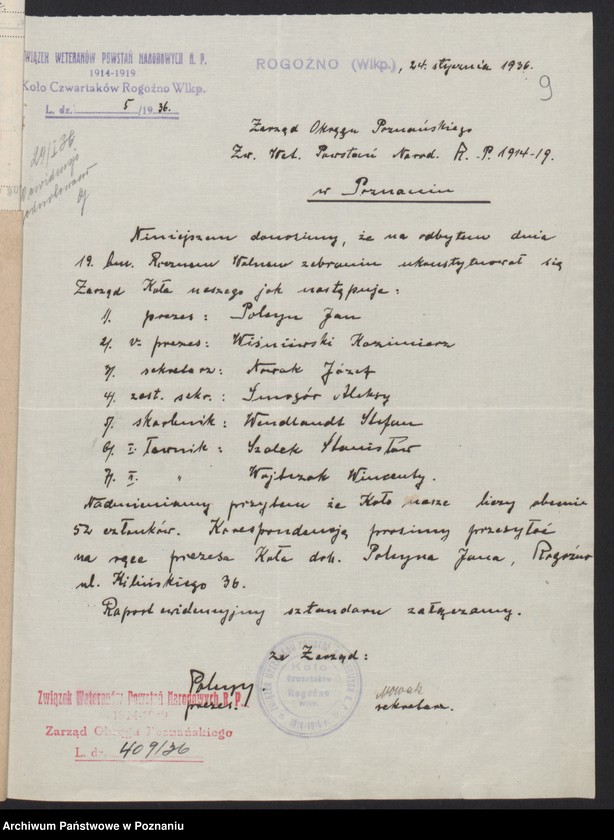 ZWIĄZEK WETERANÓW POWSTAŃ NARODOWYCH R. P.
1914-1919
Koło Czwartaków Rogoźno Wlkp.
L. dz. 5/1936.
ROGOŹNO (Wlkp.), 24. stycznia 1936.
9
29/I 36
Zarząd Okręgu Poznańskiego
Zw. Wet. Powstań Narod. R. P. 1914-19.
w Poznaniu
Niniejszem donosimy, że na odbytem dnia
19. bm. Rocznem Walnem zebraniu ukonstytuował się
Zarząd Koła naszego jak następuje:
1/. prezes: Polcyn Jan
2/. v-prezes: Wiśniewski Kazimierz
3/. sekretarz: Nowak Józef
4/. zast. sekr.: Smogór Aleksy
5/. skarbnik: Wendlandt Stefan
6/. I. ławnik: Szolek Stanisław
7/. II. " Wojtczak Wincenty.
Nadmieniamy przytem że Koło nasze liczy obecnie
52 członków. Korespondencję prosimy przesyłać
na ręce prezesa Koła drh. Polcyna Jana, Rogoźno
ul. Kilińskiego 36.
Raport ewidencyjny sztandaru załączamy.
za Zarząd:
Polcyn
prezes.
Nowak
sekretarz.
Koło
Czwartaków
Rogoźno
Związek Weteranów Powstań Narodowych R. P.
1914-1919
Zarząd Okręgu Poznańskiego
L. dz. 409/36
Archiwum Państwowe w Poznaniu